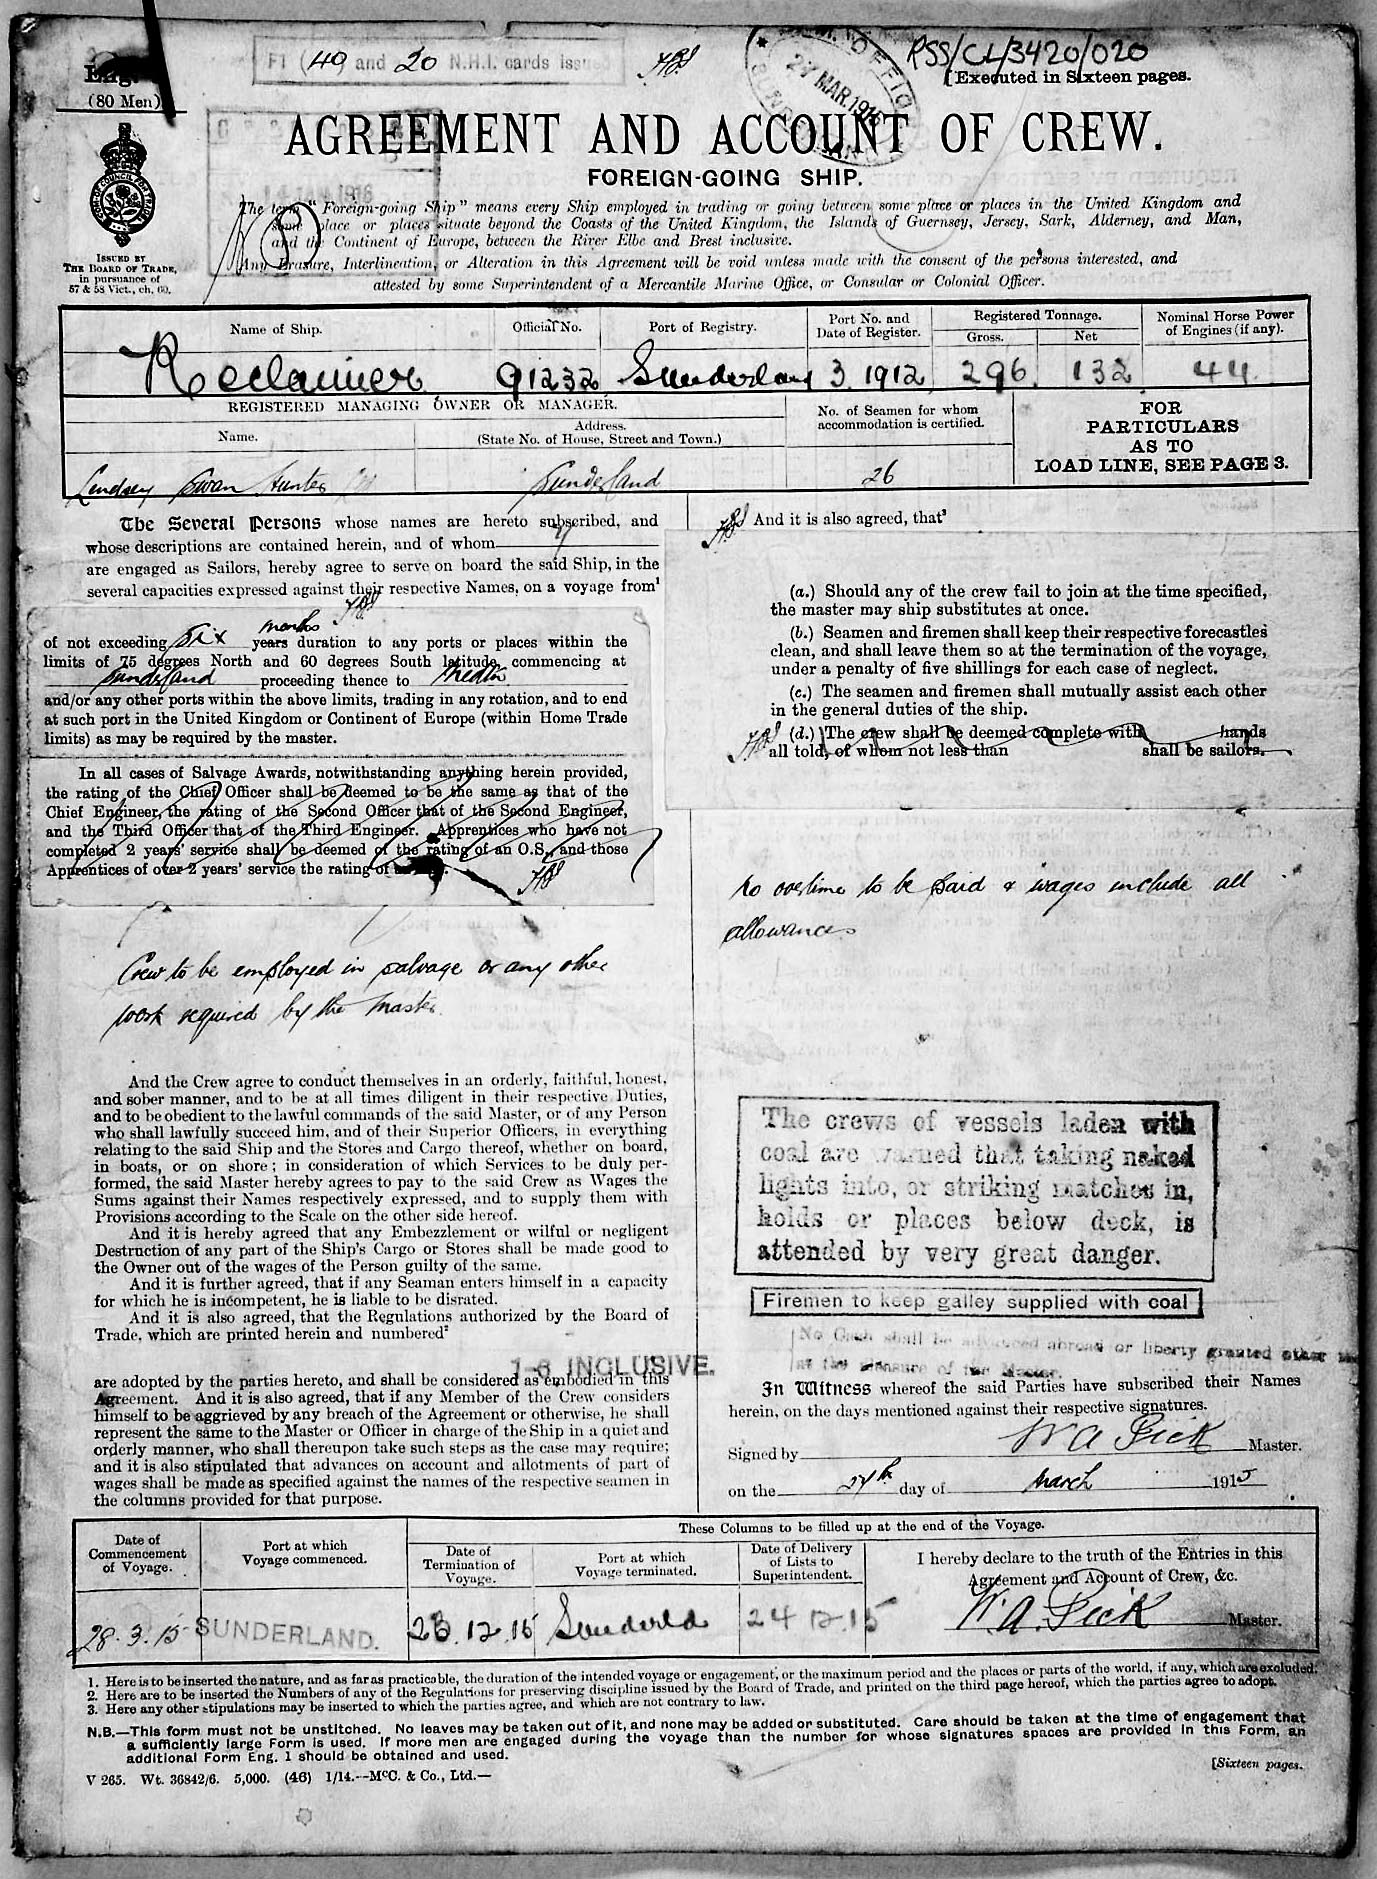 F1 (40) and 20 N.H.I. cards issued
RSS/CL/3420/020
[Executed in Sixteen pages.
Eng. 
(80 Men)
27 MAR. 1915
AGREEMENT AND ACCOUNT OF CREW.
FOREIGN-GOING SHIP.
14 JAN 1916
The term "Foreign-going Ship" means every Ship employed in trading or going between some place or places in the United Kingdom and
some place or places situate beyond the Coasts of the United Kingdom, the Islands of Guernsey, Jersey, Sark, Alderney, and Man,
and the Continent of Europe, between the River Elbe and Brest inclusive.
Any Erasure, Interlineation, or Alteration in this Agreement will be void unless made with the consent of the persons interested, and
attested by some Superintendent of a Mercantile Marine Office, or Consular or Colonial Officer.
ISSUED BY
THE BOARD OF TRADE,
in pursuance of
57 & 58 Vict., ch. 60.
Name of Ship. Official No. Port of Registry. Port No. and Date of Register. Registered Tonnage. Gross. Net Nominal Horse Power of Engines (if any).
Reclaimer 91232 Sunderland 3. 1912 296. 132 44.
REGISTERED MANAGING OWNER OR MANAGER.
Name. Address. (State No. of House, Street and Town.)
No. of Seamen for whom accommodation is certified.
FOR
PARTICULARS
AS TO
LOAD LINE, SEE PAGE 3.
Lindsey Swan Hunter Sunderland 26
The Several Persons whose names are hereto subscribed, and
whose descriptions are contained herein, and of whom
are engaged as Sailors, hereby agree to serve on board the said Ship, in the
several capacities expressed against their respective Names, on a voyage from¹
months
of not exceeding Six years duration to any ports or places within the
limits of 75 degrees North and 60 degrees South latitude, commencing at
Sunderland proceeding thence to
and/or any other ports within the above limits, trading in any rotation, and to end
at such port in the United Kingdom or Continent of Europe (within Home Trade
limits) as may be required by the master.
In all cases of Salvage Awards, notwithstanding anything herein provided,
the rating of the Chief Officer shall be deemed to be the same as that of the
Chief Engineer, the rating of the Second Officer that of the Second Engineer,
and the Third Officer that of the Third Engineer. Apprentices who have not
completed 2 years' service shall be deemed of the rating of an O.S., and those
Apprentices of over 2 years' service the rating of
Crew to be employed in salvage or any other
work required by the Master.
And the Crew agree to conduct themselves in an orderly, faithful, honest,
and sober manner, and to be at all times diligent in their respective Duties,
and to be obedient to the lawful commands of the said Master, or of any Person
who shall lawfully succeed him, and of their Superior Officers, in everything
relating to the said Ship and the Stores and Cargo thereof, whether on board,
in boats, or on shore; in consideration of which Services to be duly per-
formed, the said Master hereby agrees to pay to the said Crew as Wages the
Sums against their Names respectively expressed, and to supply them with
Provisions according to the Scale on the other side hereof.
And it is hereby agreed that any Embezzlement or wilful or negligent
Destruction of any part of the Ship's Cargo or Stores shall be made good to
the Owner out of the wages of the Person guilty of the same.
And it is further agreed, that if any Seaman enters himself in a capacity
for which he is incompetent, he is liable to be disrated.
And it is also agreed, that the Regulations authorized by the Board of
Trade, which are printed herein and numbered²
1-6 INCLUSIVE.
are adopted by the parties hereto, and shall be considered as embodied in this
Agreement. And it is also agreed, that if any Member of the Crew considers
himself to be aggrieved by any breach of the Agreement or otherwise, he shall
represent the same to the Master or Officer in charge of the Ship in a quiet and
orderly manner, who shall thereupon take such steps as the case may require;
and it is also stipulated that advances on account and allotments of part of
wages shall be made as specified against the names of the respective seamen in
the columns provided for that purpose.
And it is also agreed, that³
(a.) Should any of the crew fail to join at the time specified,
the master may ship substitutes at once.
(b.) Seamen and firemen shall keep their respective forecastles
clean, and shall leave them so at the termination of the voyage,
under a penalty of five shillings for each case of neglect.
(c.) The seamen and firemen shall mutually assist each other
in the general duties of the ship.
(d.) The crew shall be deemed complete with hands
all told, of whom not less than shall be sailors.
No overtime to be paid & wages include all
allowances
The crews of vessels laden with
coal are warned that taking naked
lights into, or striking matches in,
holds or places below deck, is
attended by very great danger.
Firemen to keep galley supplied with coal
No Cash shall be advanced abroad or liberty granted other
at the pleasure of the Master.
In Witness whereof the said Parties have subscribed their Names
herein, on the days mentioned against their respective signatures.
Signed by W A Peck Master.
on the 27th day of March 1915
These Columns to be filled up at the end of the Voyage.
Date of Commencement of Voyage. Port at which Voyage commenced. Date of Termination of Voyage. Port at which Voyage terminated. Date of Delivery of Lists to Superintendent.
I hereby declare to the truth of the Entries in this
Agreement and Account of Crew, &c.
28.3.15 SUNDERLAND. 23.12.15 Sunderld 24 12 15 W. A. Peck Master.
1. Here is to be inserted the nature, and as far as practicable, the duration of the intended voyage or engagement, or the maximum period and the places or parts of the world, if any, which are excluded.
2. Here are to be inserted the Numbers of any of the Regulations for preserving discipline issued by the Board of Trade, and printed on the third page hereof, which the parties agree to adopt.
3. Here any other stipulations may be inserted to which the parties agree, and which are not contrary to law.
N.B.—This form must not be unstitched. No leaves may be taken out of it, and none may be added or substituted. Care should be taken at the time of engagement that
a sufficiently large Form is used. If more men are engaged during the voyage than the number for whose signatures spaces are provided in this Form, an
additional Form Eng. 1 should be obtained and used.
[Sixteen pages.
V 265. Wt. 36842/6. 5,000. (46) 1/14.—McC. & Co., Ltd.—